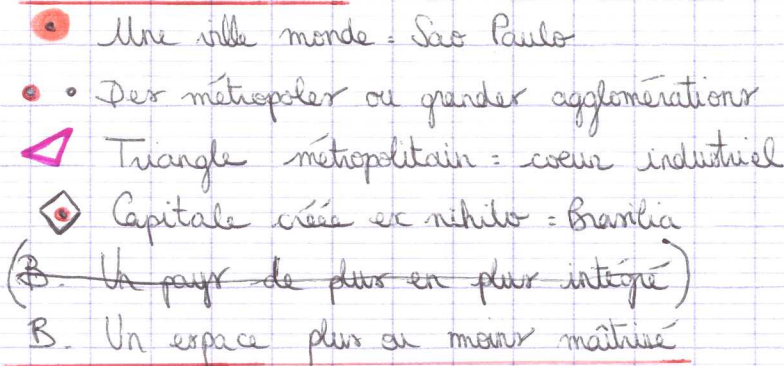 Une ville monde = Sao Paulo
Des métropoles ou grandes agglomérations
Triangle métropolitain = coeur industriel
Capitale créée ex nihilo = Brasilia
(B. Un pays de plus en plus intégré)
B. Un espace plus ou moins maîtrisé